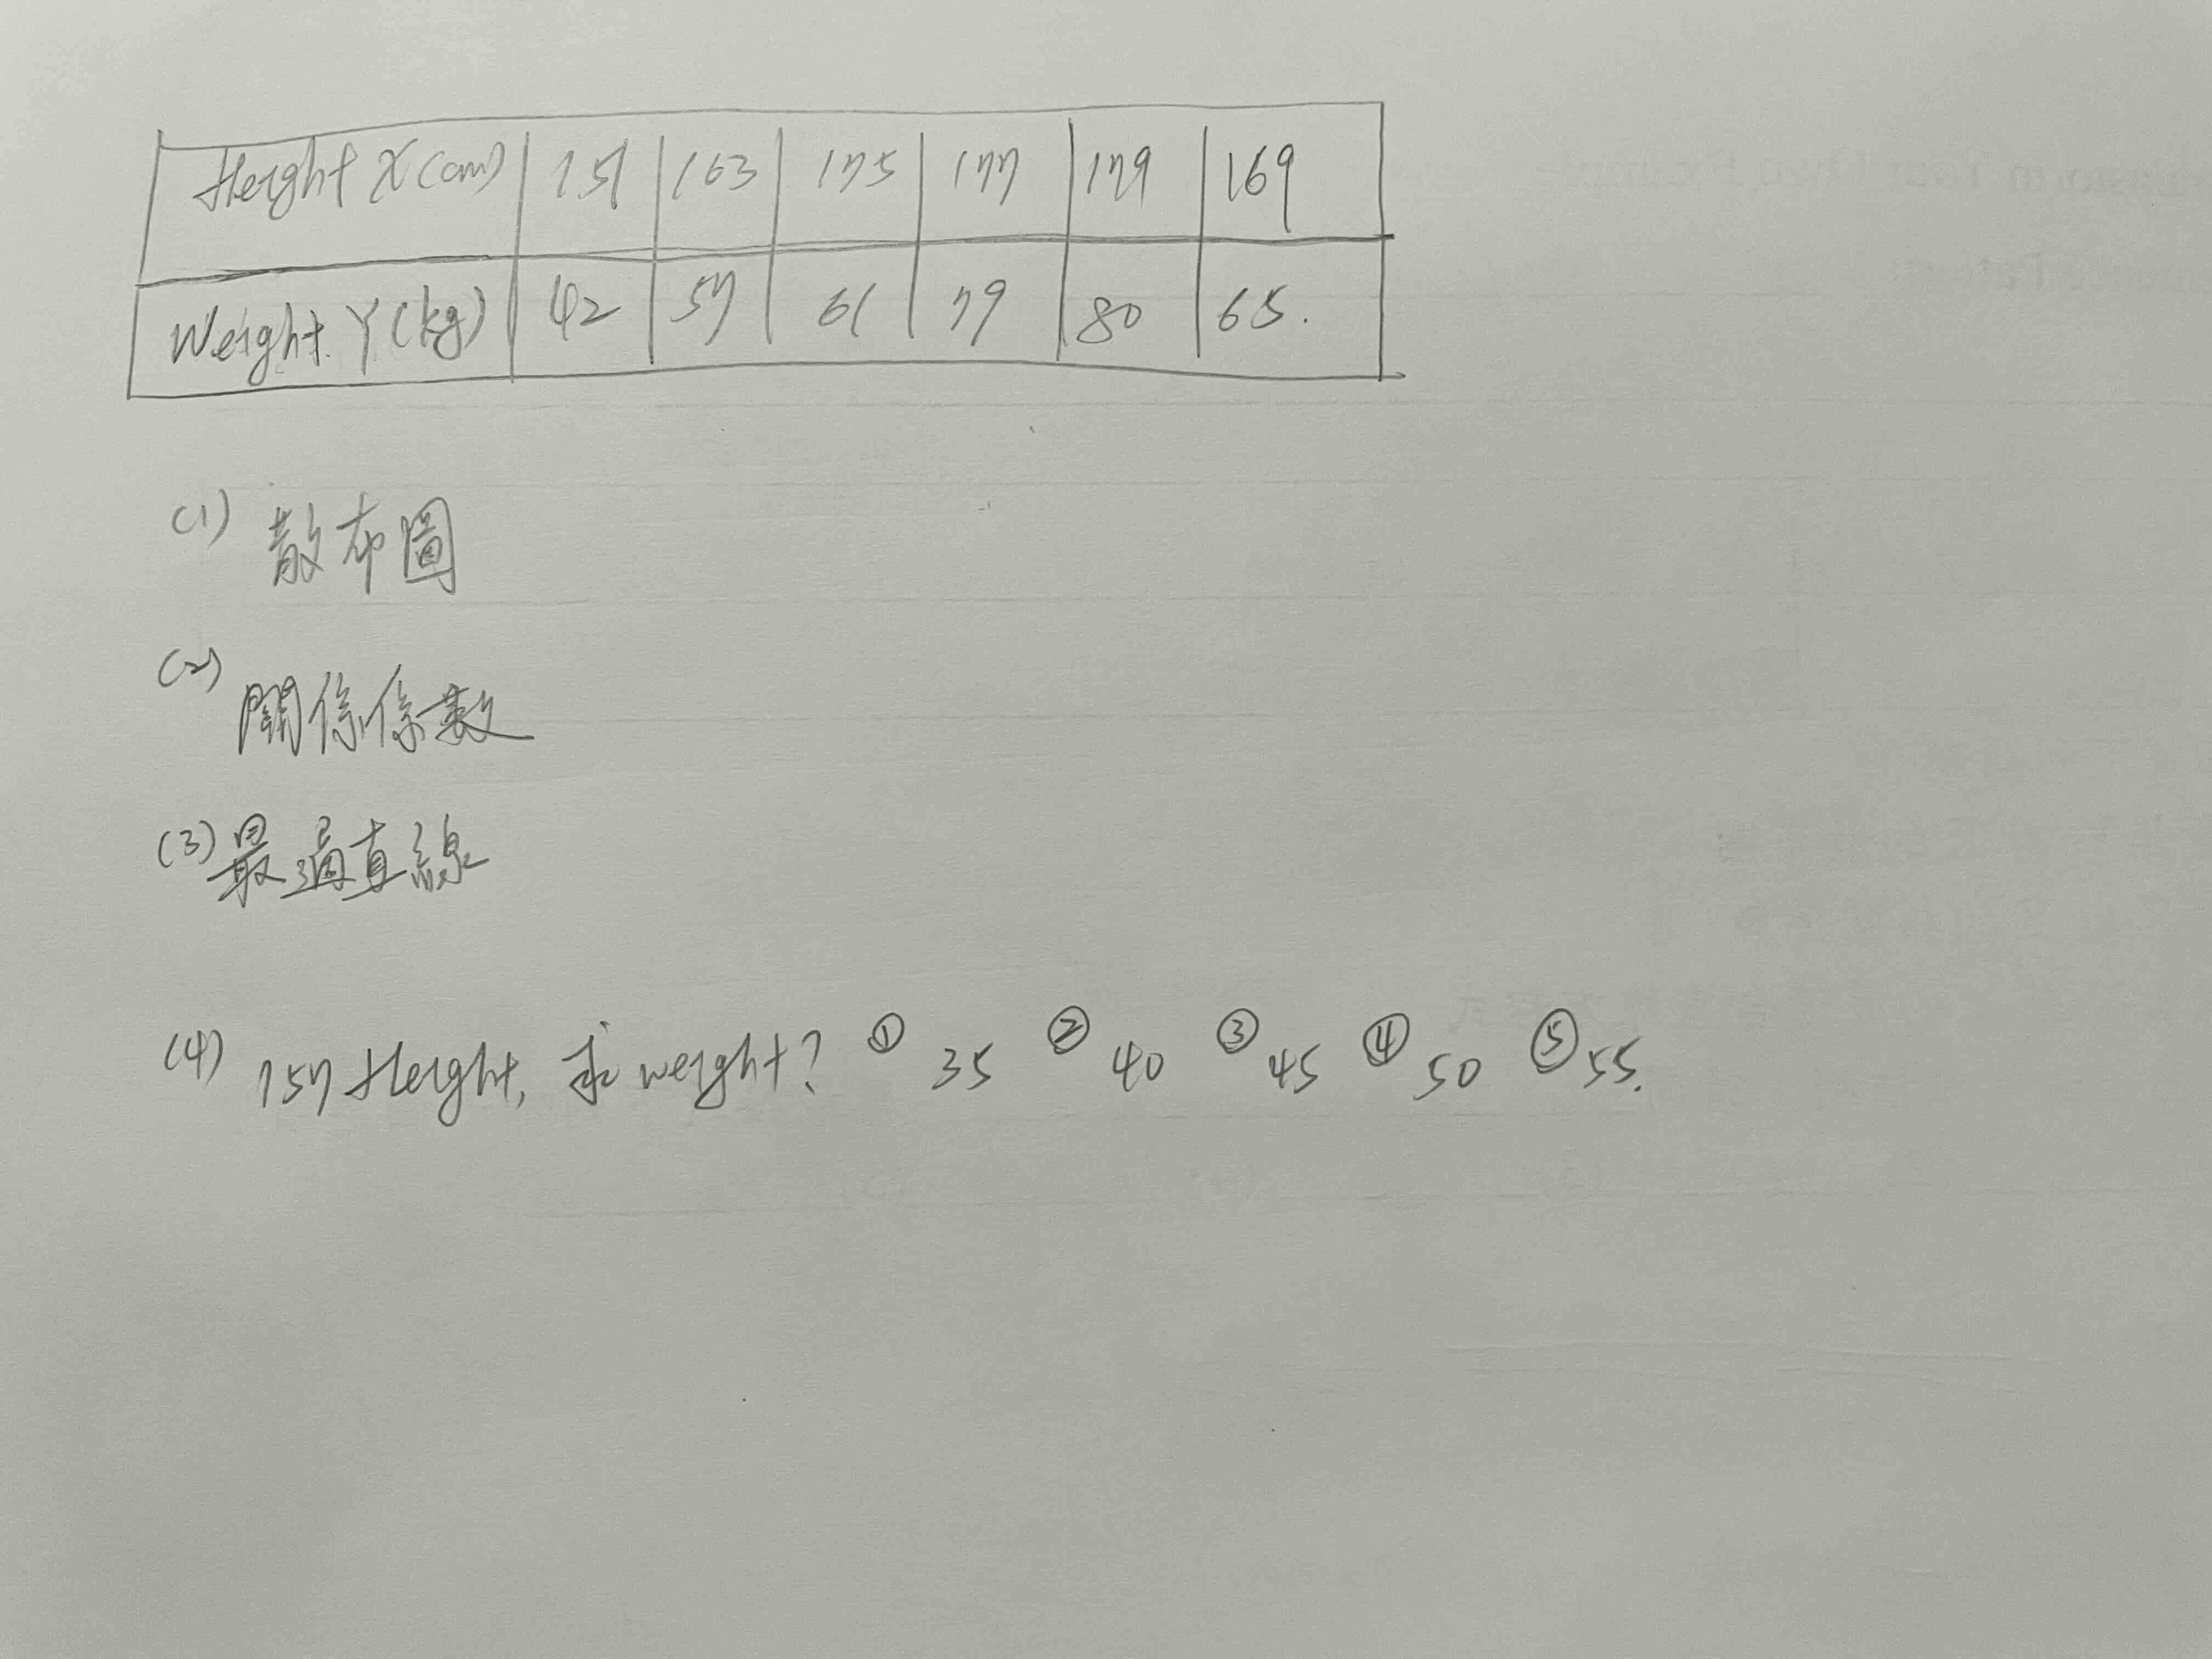 Height X(cm) 151 163 175 177 179 169
Weight Y(kg) 42 57 61 79 80 65.
(1) 散布圖
(2) 關係係数
(3) 最適直線
(4) 157 Height, 求 weight? ① 35 ② 40 ③ 45 ④ 50 ⑤ 55.